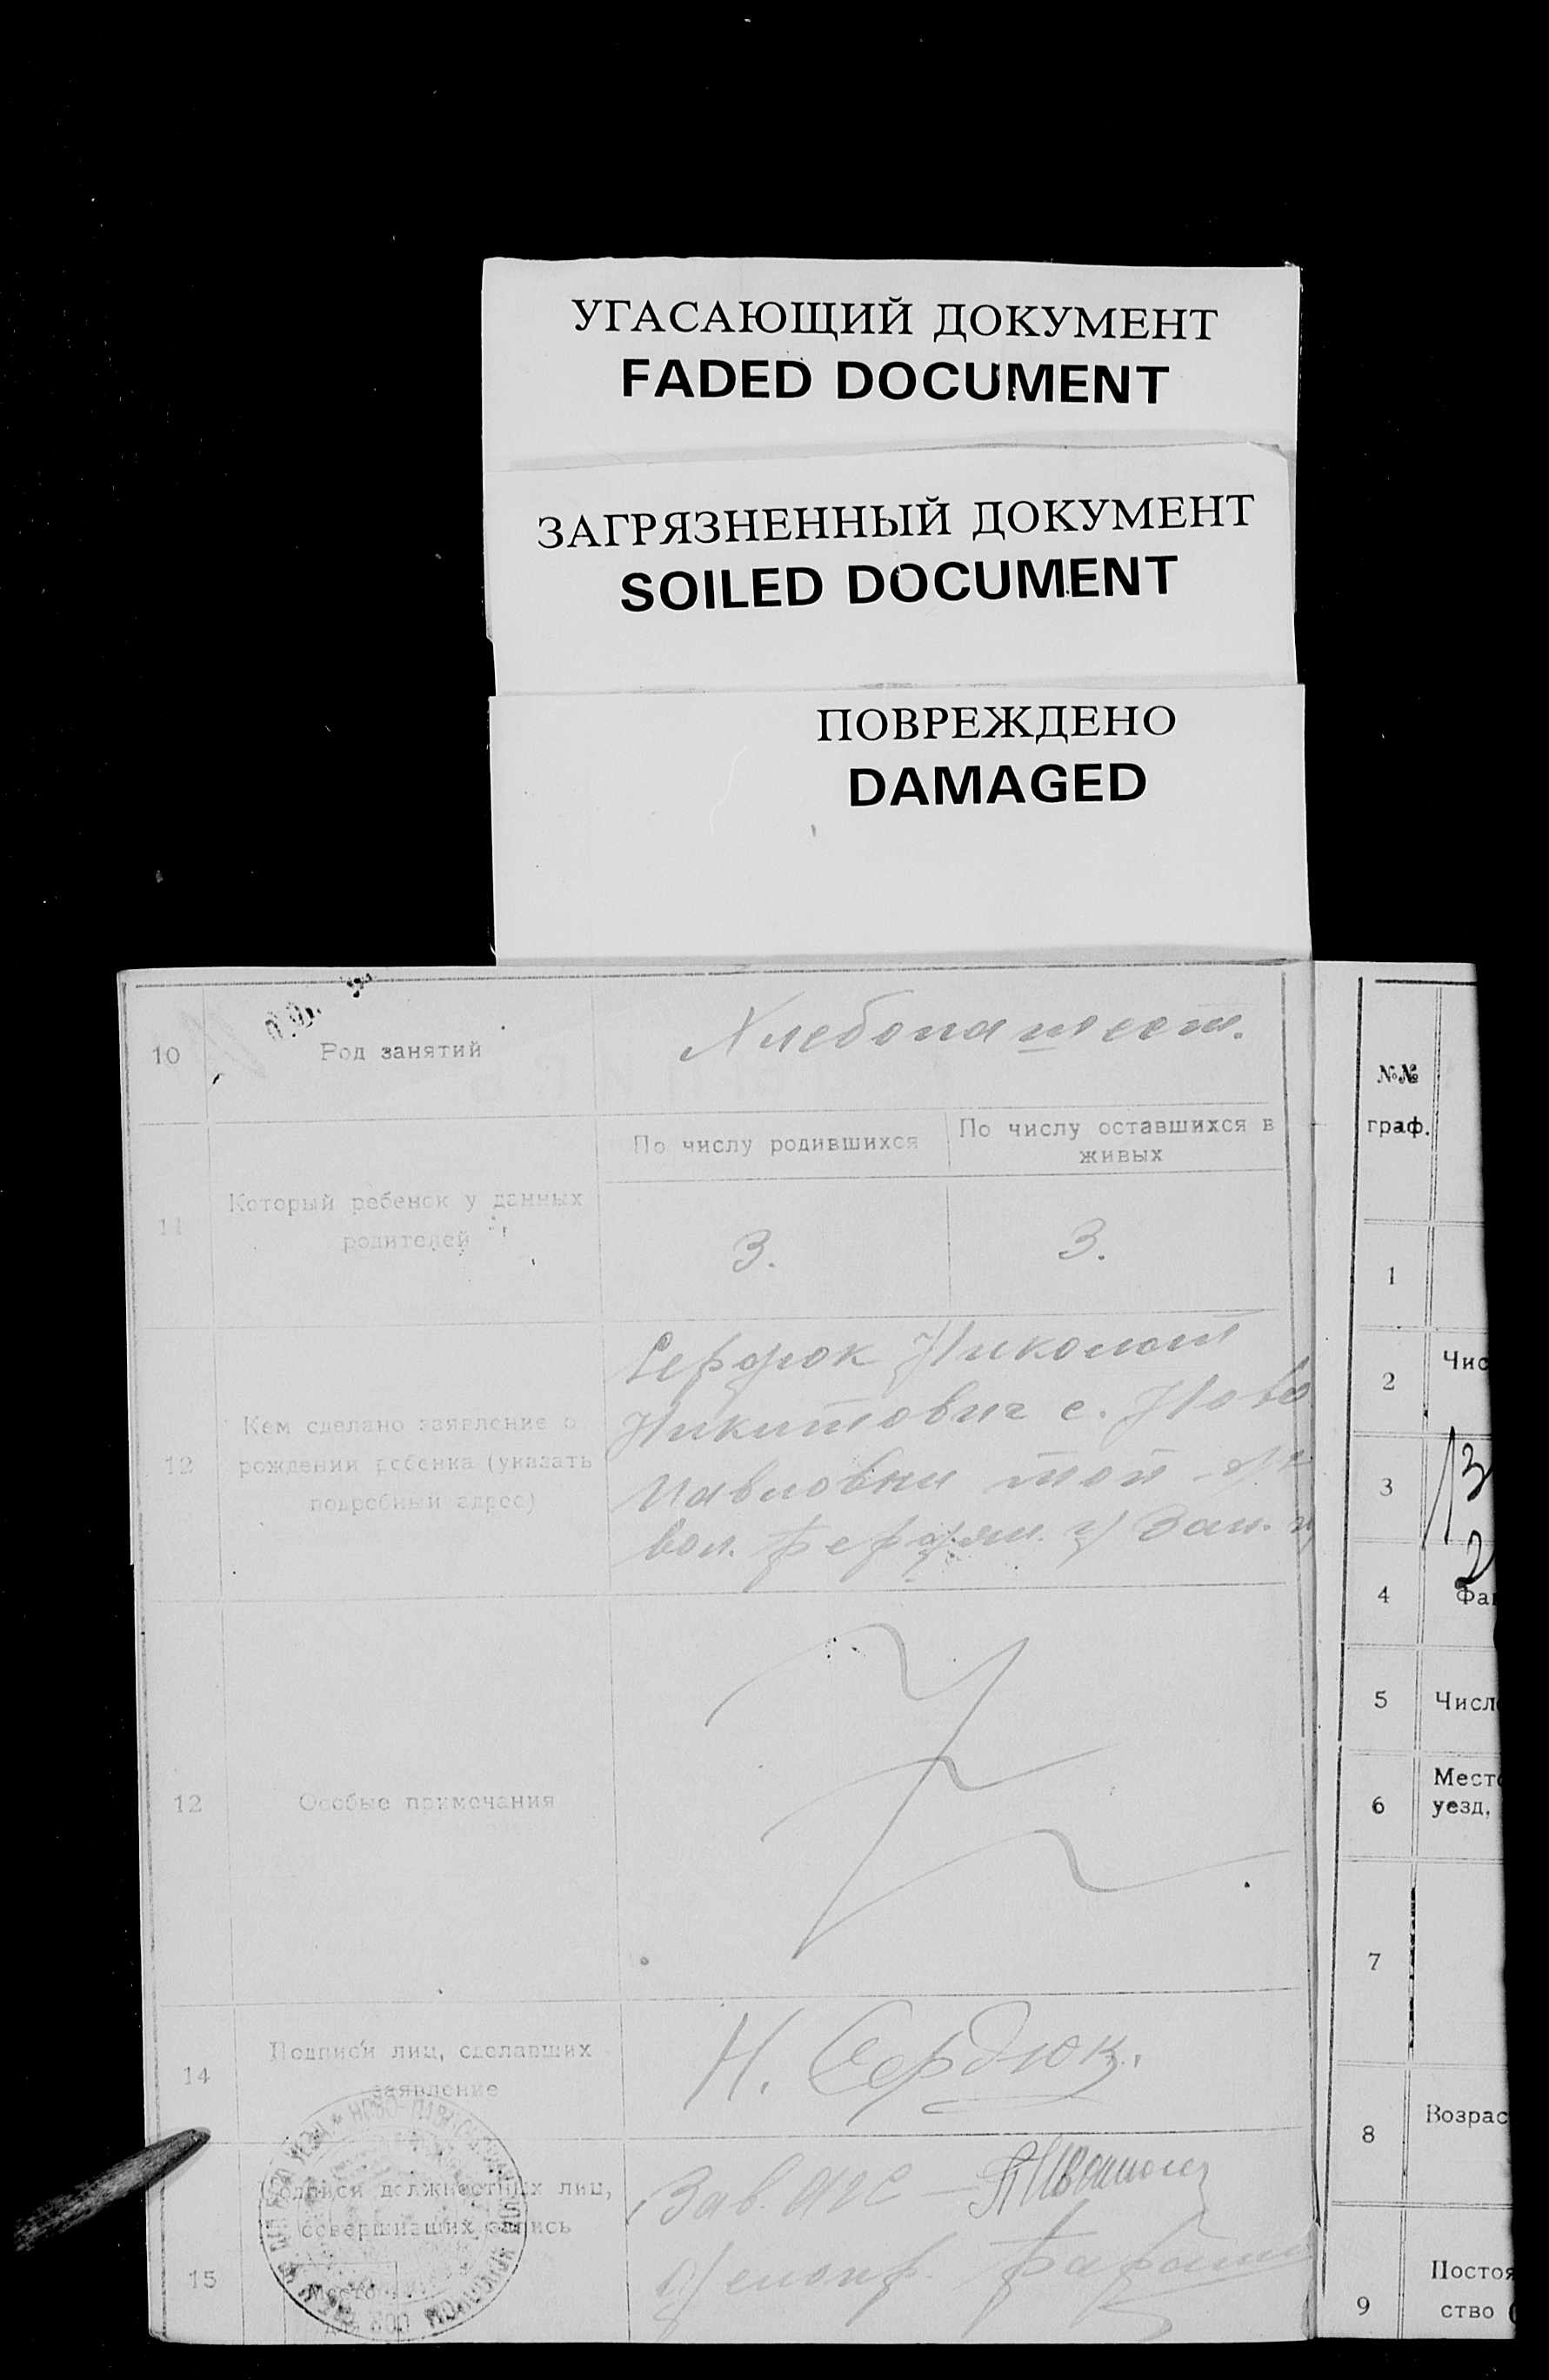 УГАСАЮЩИЙ ДОКУМЕНТ
FADED DOCUMENT
ЗАГРЯЗНЕННЫЙ ДОКУМЕНТ
SOILED DOCUMENT
ПОВРЕЖДЕНО
DAMAGED
10
Род занятий
Хлебопашест.
11
Который ребенок у данных
родителей
По числу родившихся
По числу оставшихся в
живых
3.
3.
12
Кем сделано заявление о
рождении ребенка (указать
подробный адрес)
Сердюк Николай
Никитович с. Ново
Павловки той-же
вол. Бердян. у Зап.
12
Особые примечания
14
Подписи лиц, сделавших
заявление
Н. Сердюк.
15
Подписи должностных лиц,
совершивших запись
Место
Зав. АГС —
Делопр.
№№
граф.
1
2
Чис
3
4
Фа
5
Числ
6
Мест
уезд,
7
8
Возрас
9
Постоя
ство (